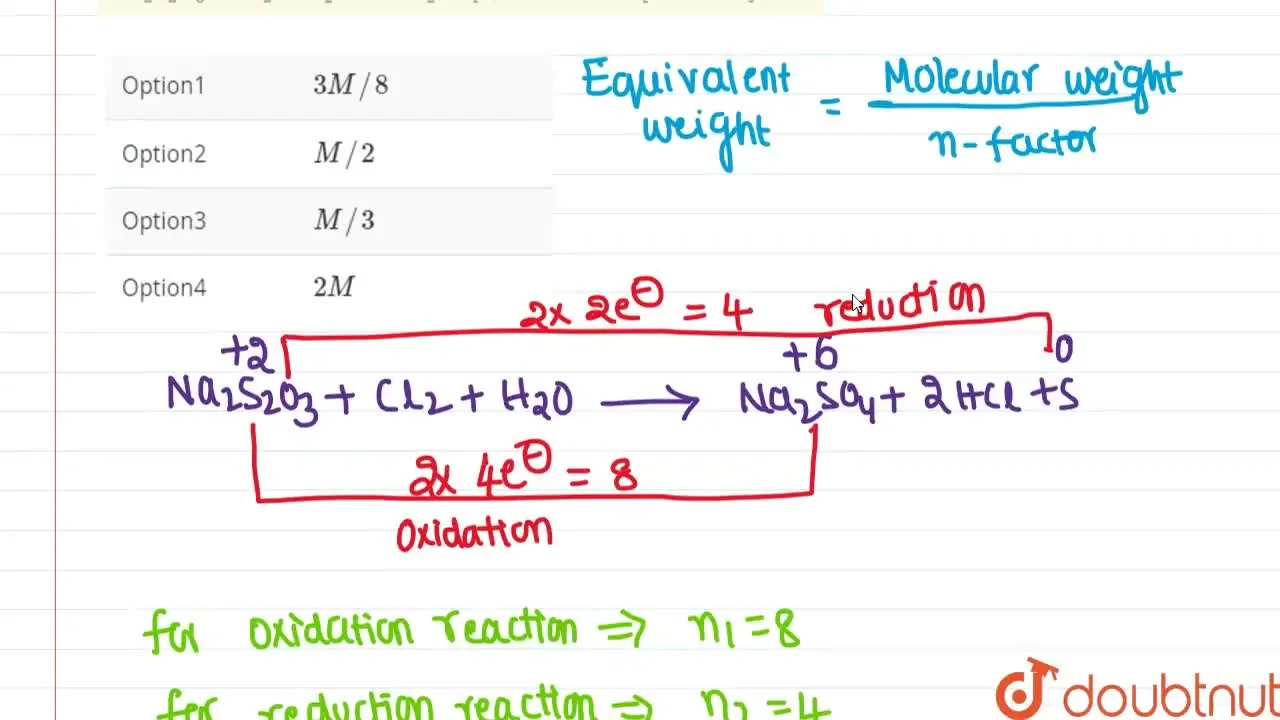 Option1 3M/8
Option2 M/2
Option3 M/3
Option4 2M
Equivalent weight = Molecular weight / n-factor
2x 2e⊖ = 4 reduction
+2 +6 0
Na2S2O3 + Cl2 + H2O ⟶ Na2SO4 + 2HCl + S
2x 4e⊖ = 8
Oxidation
for oxidation reaction ⇒ n1 = 8
for reduction reaction ⇒ n2 = 4
doubtnut